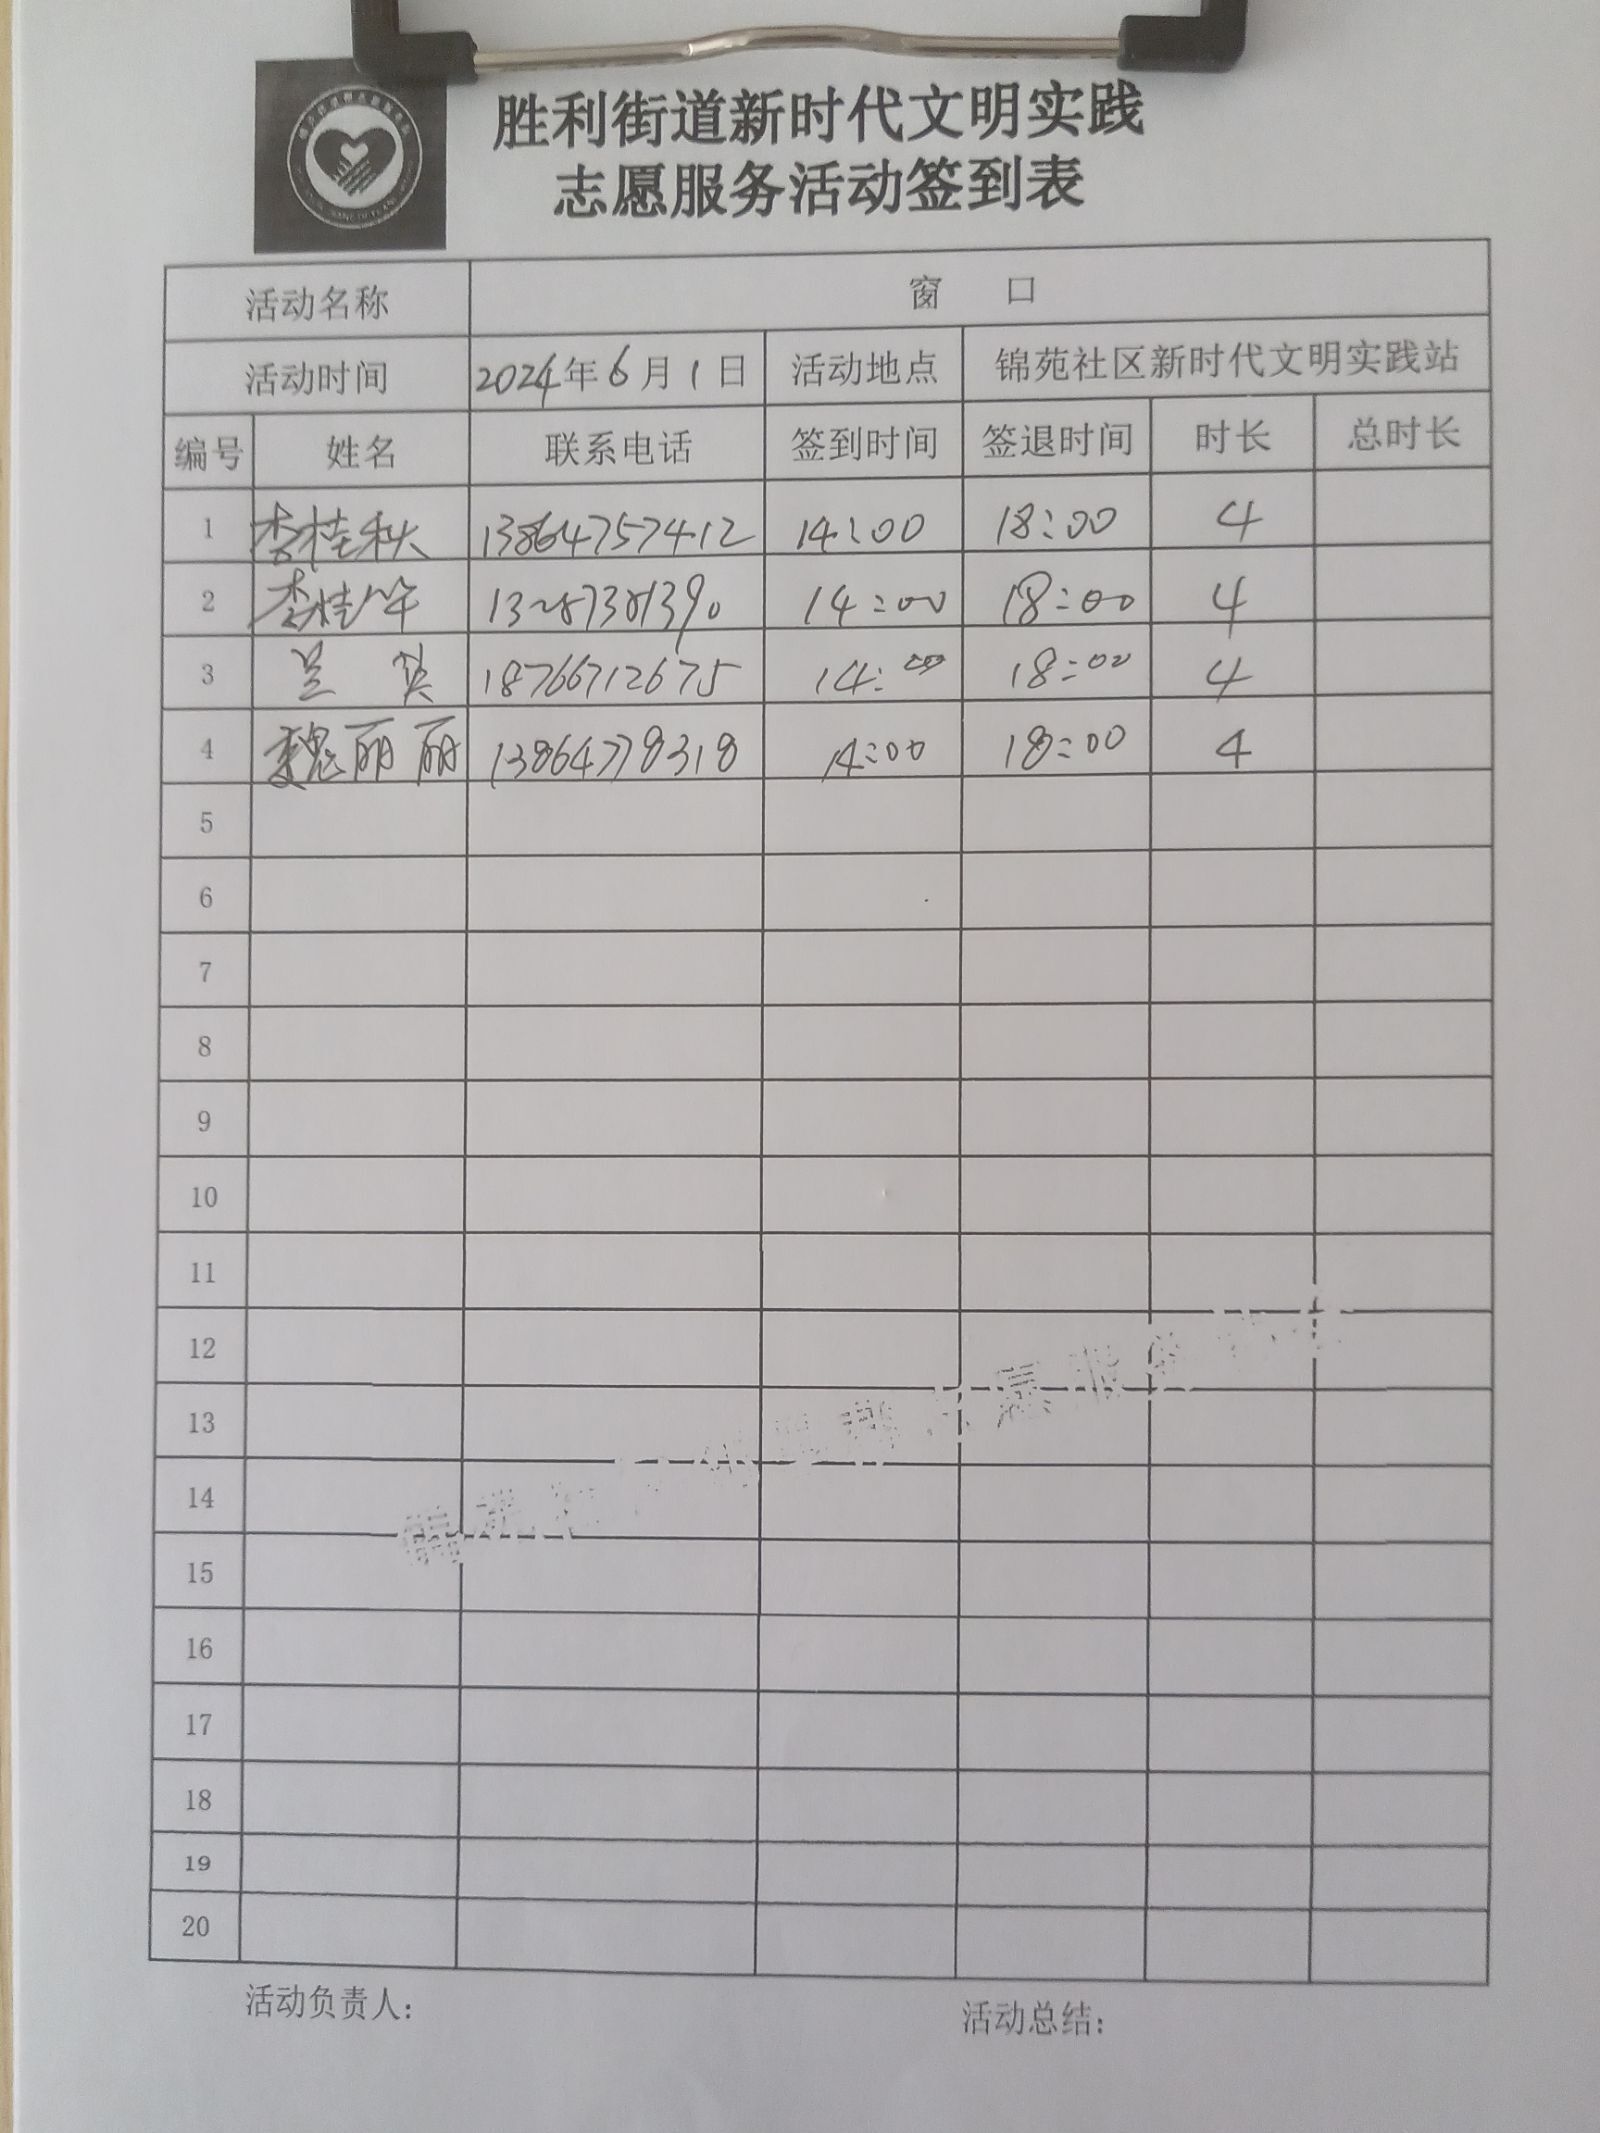 胜利街道新时代文明实践
志愿服务活动签到表
活动名称 窗 口
活动时间 2024年6月1日 活动地点 锦苑社区新时代文明实践站
编号 姓名 联系电话 签到时间 签退时间 时长 总时长
1 李桂秋 13864757412 14:00 18:00 4
2 李桂华 14:00 18:00 4
3 兰 英 18766712675 14:00 18:00 4
4 魏丽丽 13864778318 14:00 18:00 4
5
6
7
8
9
10
11
12
13
14
15
16
17
18
19
20
活动负责人: 活动总结: